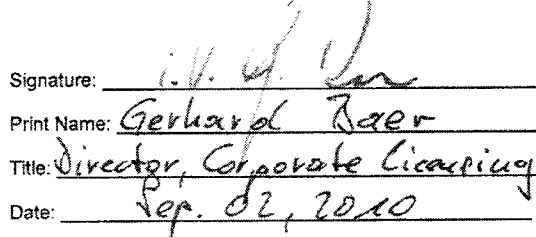 Signature: i.V. G.
Print Name: Gerhard Baer
Title: Director, Corporate Licensing
Date: Sep. 02, 2010